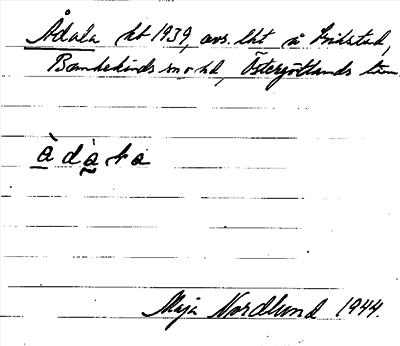 Ådala hb 1939, avs. lht å Grilstad,
Bankekinds sn o hd, Östergötlands län
à d à l a
Maja Nordlund 1944.